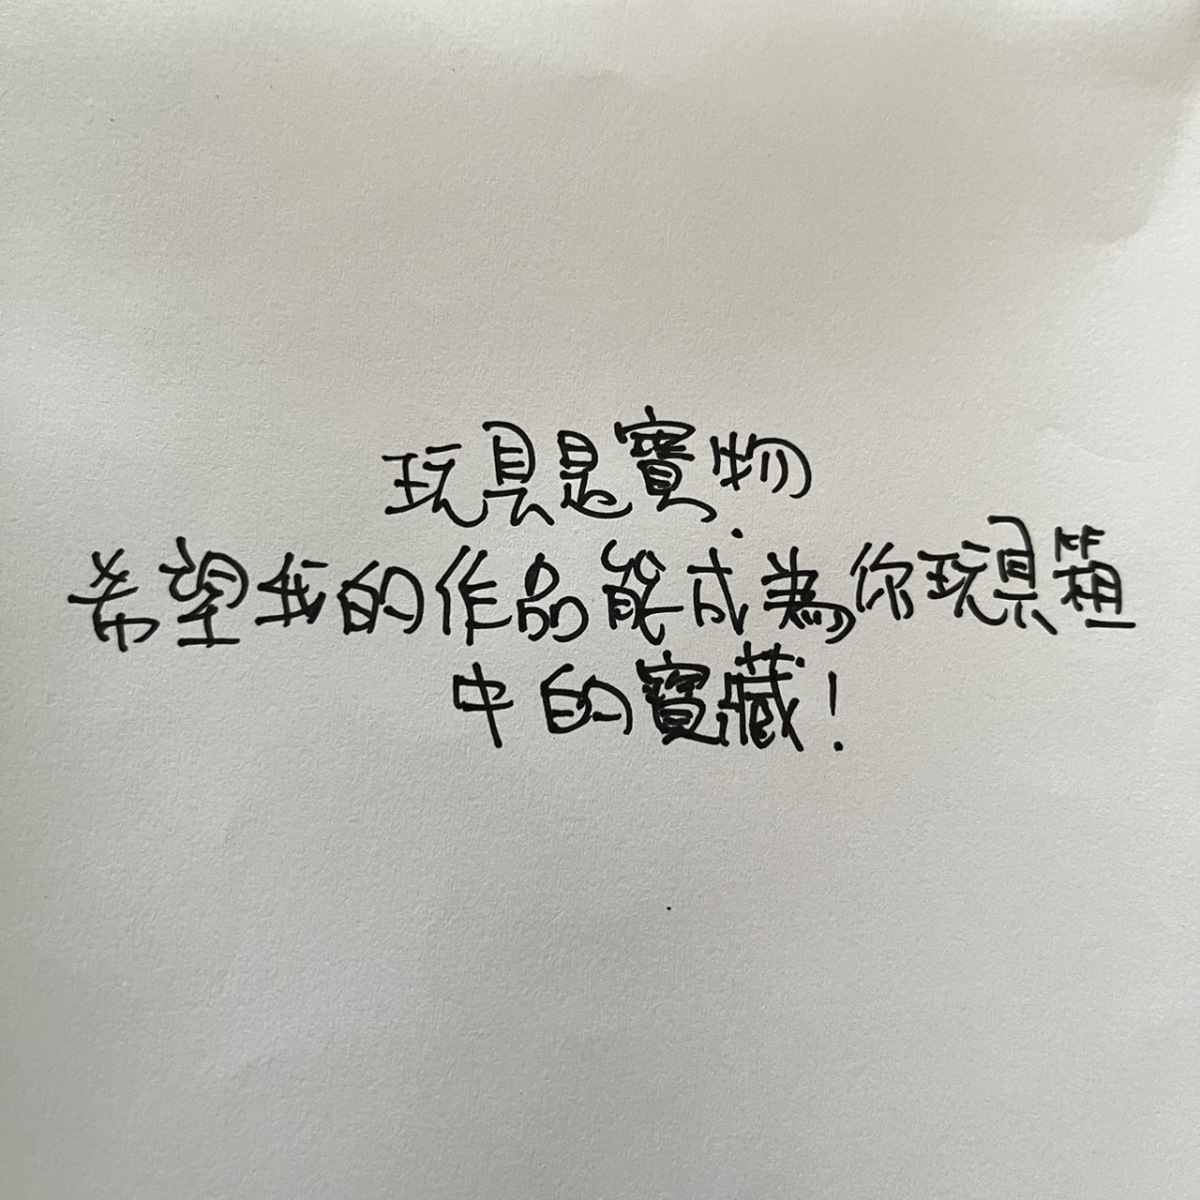 玩具是寶物
希望我的作品能成為你玩具箱
中的寶藏！